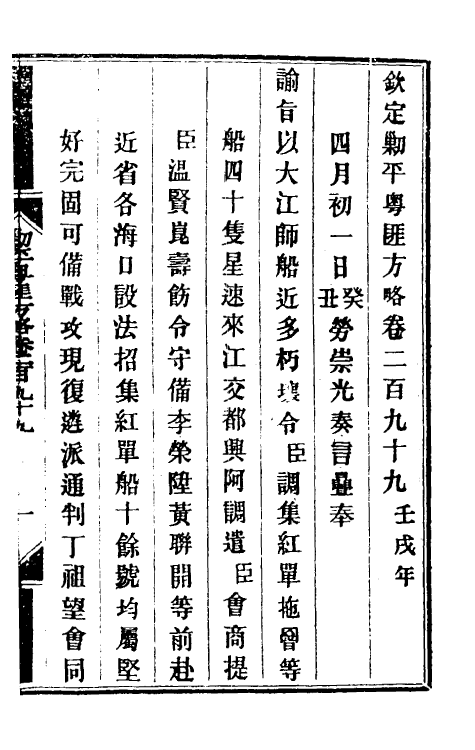 欽定勦平粤匪方略卷二百九十九 壬戌年
四月初一日癸丑勞崇光奏言疊奉
諭旨以大江師船近多朽壞令臣調集紅單拖罾等
船四十隻星速來江交都興阿調遣臣會商提
臣温賢崑壽飭令守備李榮陞黃聯開等前赴
近省各海口設法招集紅單船十餘號均屬堅
好完固可備戰攻現復遴派通判丁祖望會同